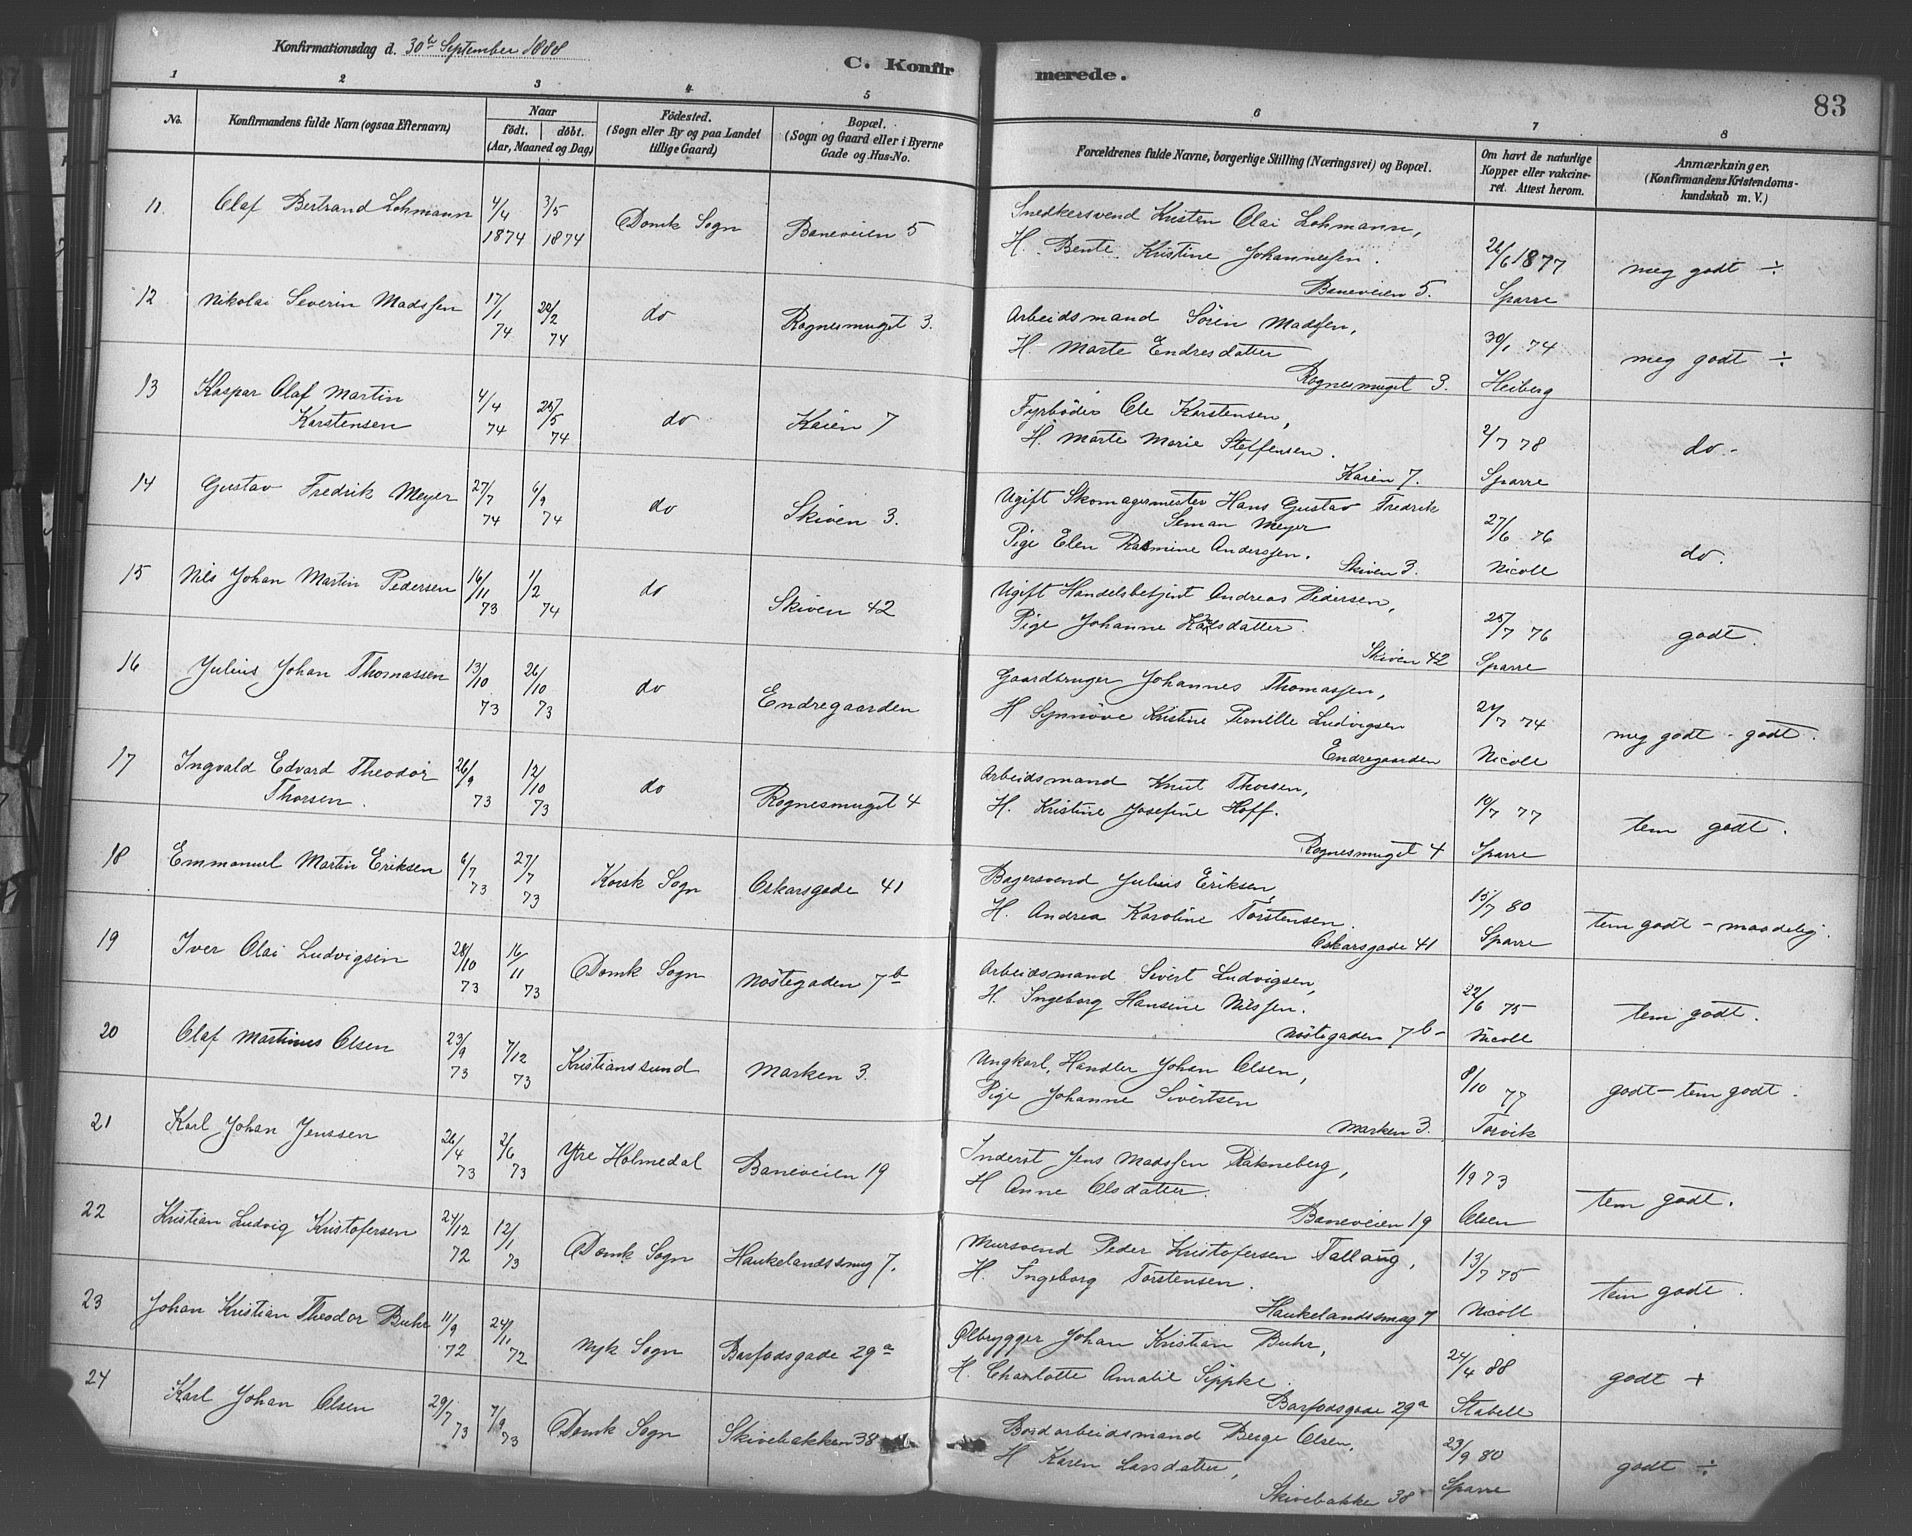 Konfirmationsdag d. 30te September 1888
C. Konfirmerede.
83
1 2 3 4 5 6 7 8
No.
Konfirmandens fulde Navn (ogsaa Efternavn)
Naar
født. | døbt.
(Aar, Maaned og Dag)
Fødested.
(Sogn eller By og paa Landet
tillige Gaard)
Bopæl.
(Sogn og Gaard eller i Byerne
Gade og Hus-No.
Forældrenes fulde Navne, borgerlige Stilling (Næringsvei) og Bopæl.
Om havt de naturlige
Kopper eller vakcine-
ret. Attest herom.
Anmærkninger.
(Konfirmandens Kristendoms-
kundskab m. V.)
11 Olaf Bertrand Lohmann 4/4 1874 3/5 1874 Domk Sogn Baneveien 5
Snedkersvend Kristen Olai Lohmann,
H. Bente Kristine Johannessen.
Baneveien 5.
26/6 1877 Sparre
meg godt ÷
12 Nikolai Severin Madssen 17/1 74 22/2 74 do Rognesmuget 3.
Arbeidsmand Sören Madssen,
H. Marte Endresdatter
Rognesmuget 3.
30/1 74 Heiberg
meg godt ÷
13 Kaspar Olaf Martin
Karstensen 4/4 74 25/5 74 do Kaien 7
Fyrböder Ole Karstensen,
H. Marte Marie Steffensen.
Kaien 7.
2/7 78 Sparre
do -
14 Gustav Fredrik Meyer 27/7 74 6/9 74 do Skiven 3.
Ugift Skomagermester Hans Gustav Fredrik
Seman Meyer
Pige Elen Rasmine Anderssen.
Skiven 3.
27/6 76 Nicoll
do.
15 Nils Johan Martin Pedersen 16/11 73 1/2 74 do Skiven 42
Ugift Handelsbetjent Andreas Pedersen,
Pige Johanne datter.
Skiven 42
25/7 76 Sparre
godt.
16 Julius Johan Thomassen 13/10 73 26/10 73 do Endregaarden
Gaardbruger Johannes Thomassen,
H Synnöve Kristine Pernille Ludvigsen
Endregaarden
24/7 74 Nicoll
meg godt - godt.
17 Ingvald Edvard Theodor
Thorsen. 26/9 73 12/10 73 do Rognesmuget 4
Arbeidsmand Knut Thorsen,
H. Kristine Josefine Hoff.
Rognesmuget 4
19/7 77 Sparre
tem godt.
18 Emmanuel Martin Eriksen 6/7 73 27/7 73 Korsk Sogn Oskarsgade 41
Bagersvend Julius Eriksen,
H. Andrea Karoline Torstensen.
Oskarsgade 41
15/7 80 Sparre
tem godt - maadelig.
19 Iver Olai Ludvigsen 28/10 73 16/11 73 Domk Sogn Nöstegaden 7b
Arbeidsmand Sivert Ludvigsen,
H. Ingeborg Hansine Nilssen.
Nöstegaden 7b-
22/6 75 Nicoll
tem godt.
20 Olaf Martinus Olsen 23/9 73 7/12 73 Kristianssund Marken 3.
Ungkarl, Handler Johan Olsen,
Pige Johanne Sivertsen
Marken 3.
8/10 77 Torvik
godt - tem godt.
21 Karl Johan Jenssen 26/4 73 2/6 73 Ytre Holmedal Baneveien 19
Inderst Jens Madssen Rakneberg,
H Anne Olsdatter.
Baneveien 19
1/9 73 Olsen
tem godt.
22 Kristian Ludvig Kristofersen 24/12 72 12/1 73 Domk Sogn Haukelandssmug 7.
Mursvend Peder Kristofersen Tallaug,
H. Ingeborg Torstensen.
Haukelandssmug 7
13/7 75 Nicoll
tem godt.
23 Johan Kristian Theodor Buhr 11/9 72 24/11 72 Nyk Sogn Barfodsgade 29a
Ølbrygger Johan Kristian Buhr,
H. Charlotte Amalie Sippke.
Barfodsgade 29a
24/4 88 Stabell
godt +
24 Karl Johan Olsen 29/7 73 7/9 73 Domk Sogn Skivebakken 38
Bordarbeidsmand Berge Olsen,
H Karen Larsdatter,
Skivebakke 38
23/9 80 Sparre
godt ÷